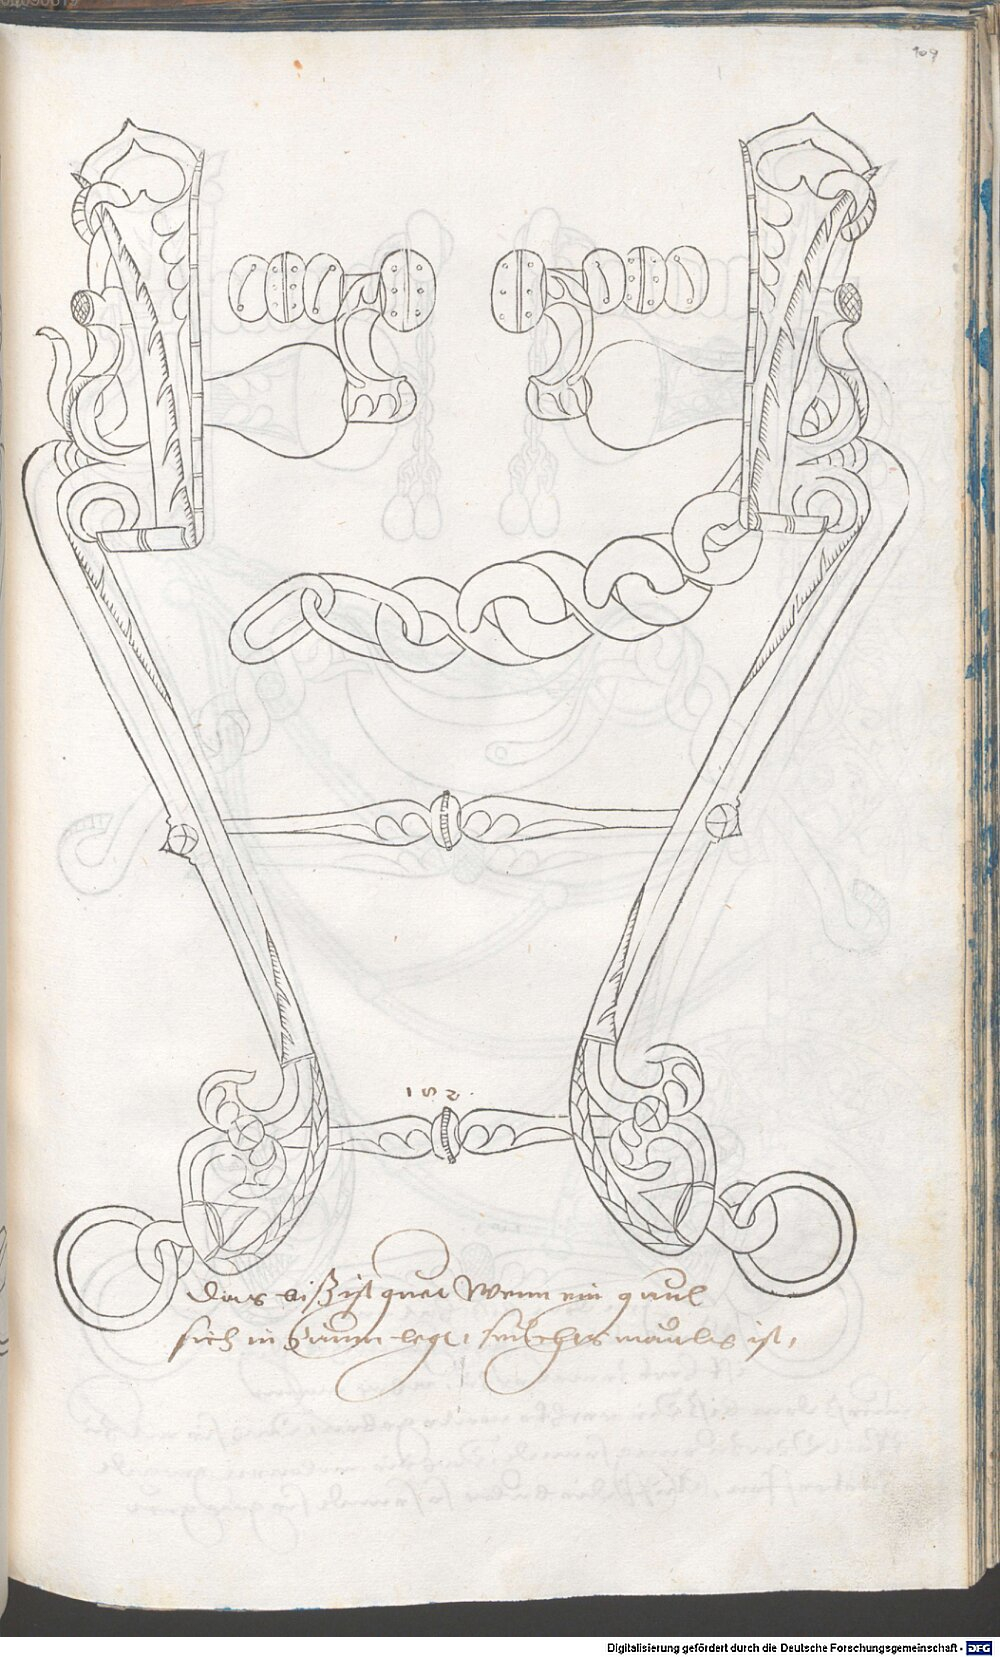 109
182.
Das bißist guet Wenn ein gaul
sich in Zaum legt, frisches maules ist,
Digitalisierung gefördert durch die Deutsche Forschungsgemeinschaft - DFG